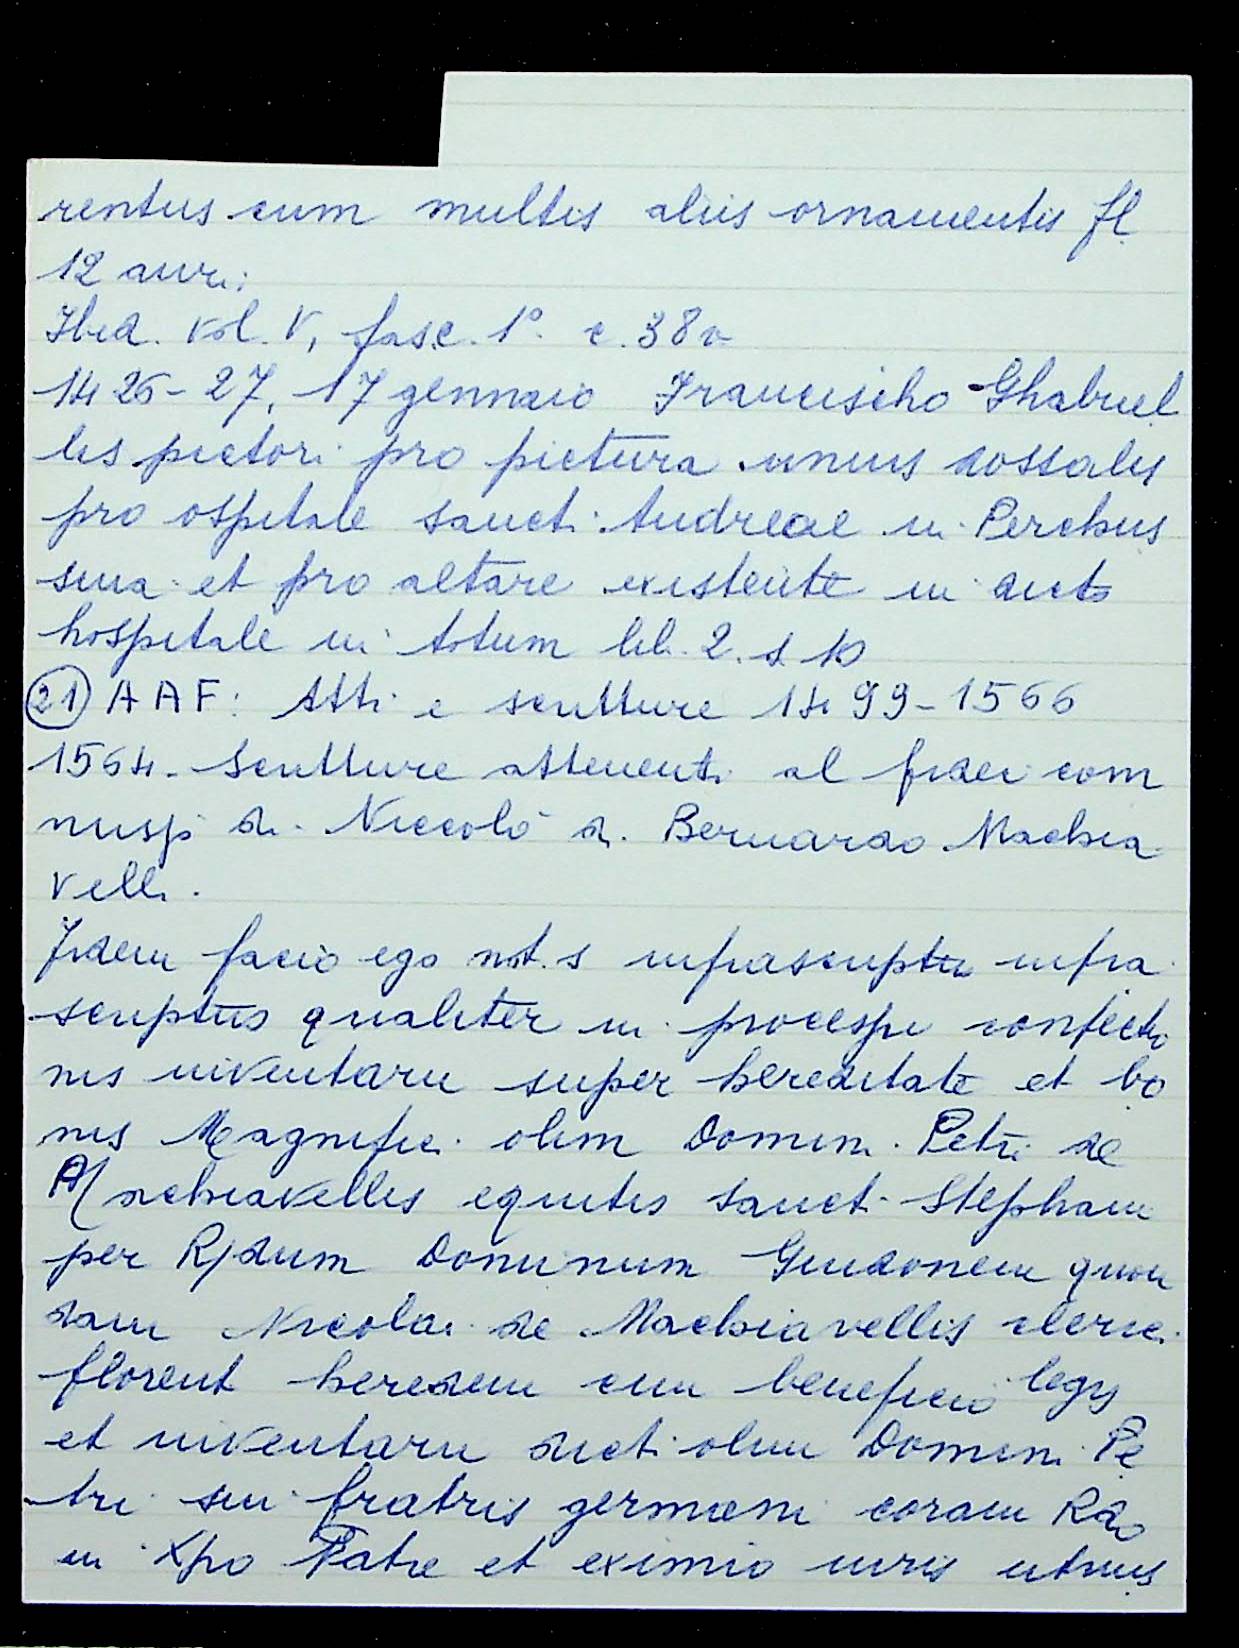 rentus cum multis aliis ornamentis fl
12 auri:
Ibid. vol. V, fasc. 1º. c. 38v
1426-27, 17 gennaio Francischo Ghabriel
lis pictori pro pictura unius dossalis
pro ospitale sancti Andreae in Perchus
sina et pro altare existente in dicto
hospitale in totum lib. 2. s. 10
(21) AAF: Atti e scritture 1499-1566
1564. Scritture attenenti al fidei com
misso di Niccolò di Bernardo Machia
velli.
Fidem facio ego not.s infrascriptu infra
scriptus qualiter in processu confectio
nis inventarii super hereditate et bo
nis Magnifici olim Domini Petri de
Machiavellis equitis Sancti Stephani
per R/dum Dominum Guidonem quon
dam Nicolai de Machiavellis cleric.
florent heredem cum beneficio legis
et inventarii dicti olim Domini Pe
tri sui fratris germani coram Rdo
in Xpo Patre et eximio iuris utrius